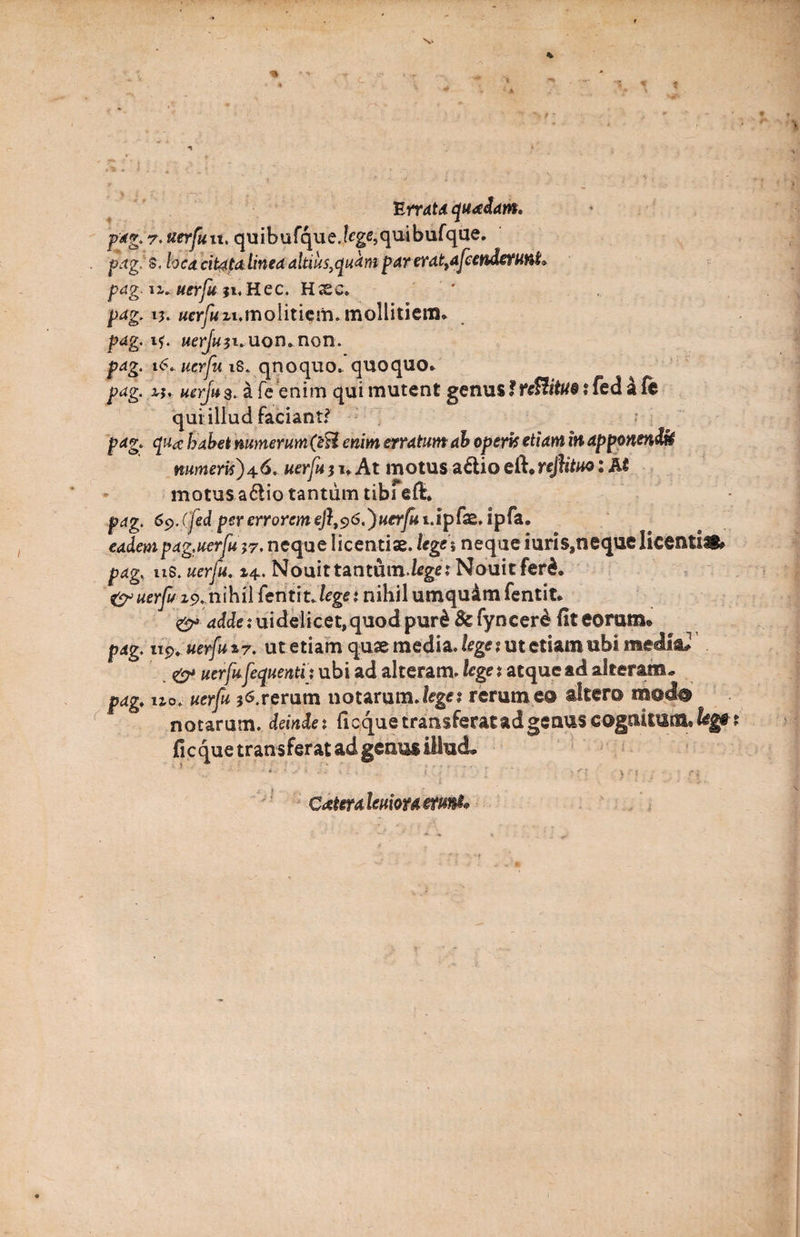 Errata quædam.
pag. 7. uerſu 11. quibuſque. lege, quibuſque.
pag. 8. loca citata linea altius, quàm par erat, aſcenderunt.
pag. 12. uerſu 31. Hec. Hæc.
pag. 13. uerſu 21. molitiem. mollitiem.
pag. 15. uerſu 31. uon. non.
pag. 16. uerſu 18. qnoquo. quoquo.
pag. 23. uerſu 3. à ſe enim qui mutent genus? reſtituo: ſed à ſe
qui illud faciant?
pag. quæ habet numerum (eſt enim erratum ab operis etiam in apponendis
numeris) 46. uerſu 31. At motus actio eſt. reſtituo: At
motus actio tantùm tibi eſt.
pag. 69. (ſed per errorem eſt, 96.) uerſu 1. ipſæ. ipſa.
eadem pag. uerſu 37. neque licentiæ. lege; neque iuris, neque licentiæ.
pag. 118. uerſu. 24. Nouit tantùm. lege: Nouit ferè.
& uerſu 29. nihil ſentit. lege: nihil umquàm ſentit.
& adde: uidelicet, quod purè & ſyncerè ſit eorum.
pag. 119. uerſu 27. ut etiam quæ media. lege: ut etiam ubi media.
& uerſu ſequenti: ubi ad alteram. lege: atque ad alteram.
pag. 120. uerſu 36. rerum notarum. lege: rerum eo altero modo
notarum. deinde: ſicque transferat ad genus cognitum. lege:
ſicque transferat ad genus illud.
Cætera leuiora erunt.